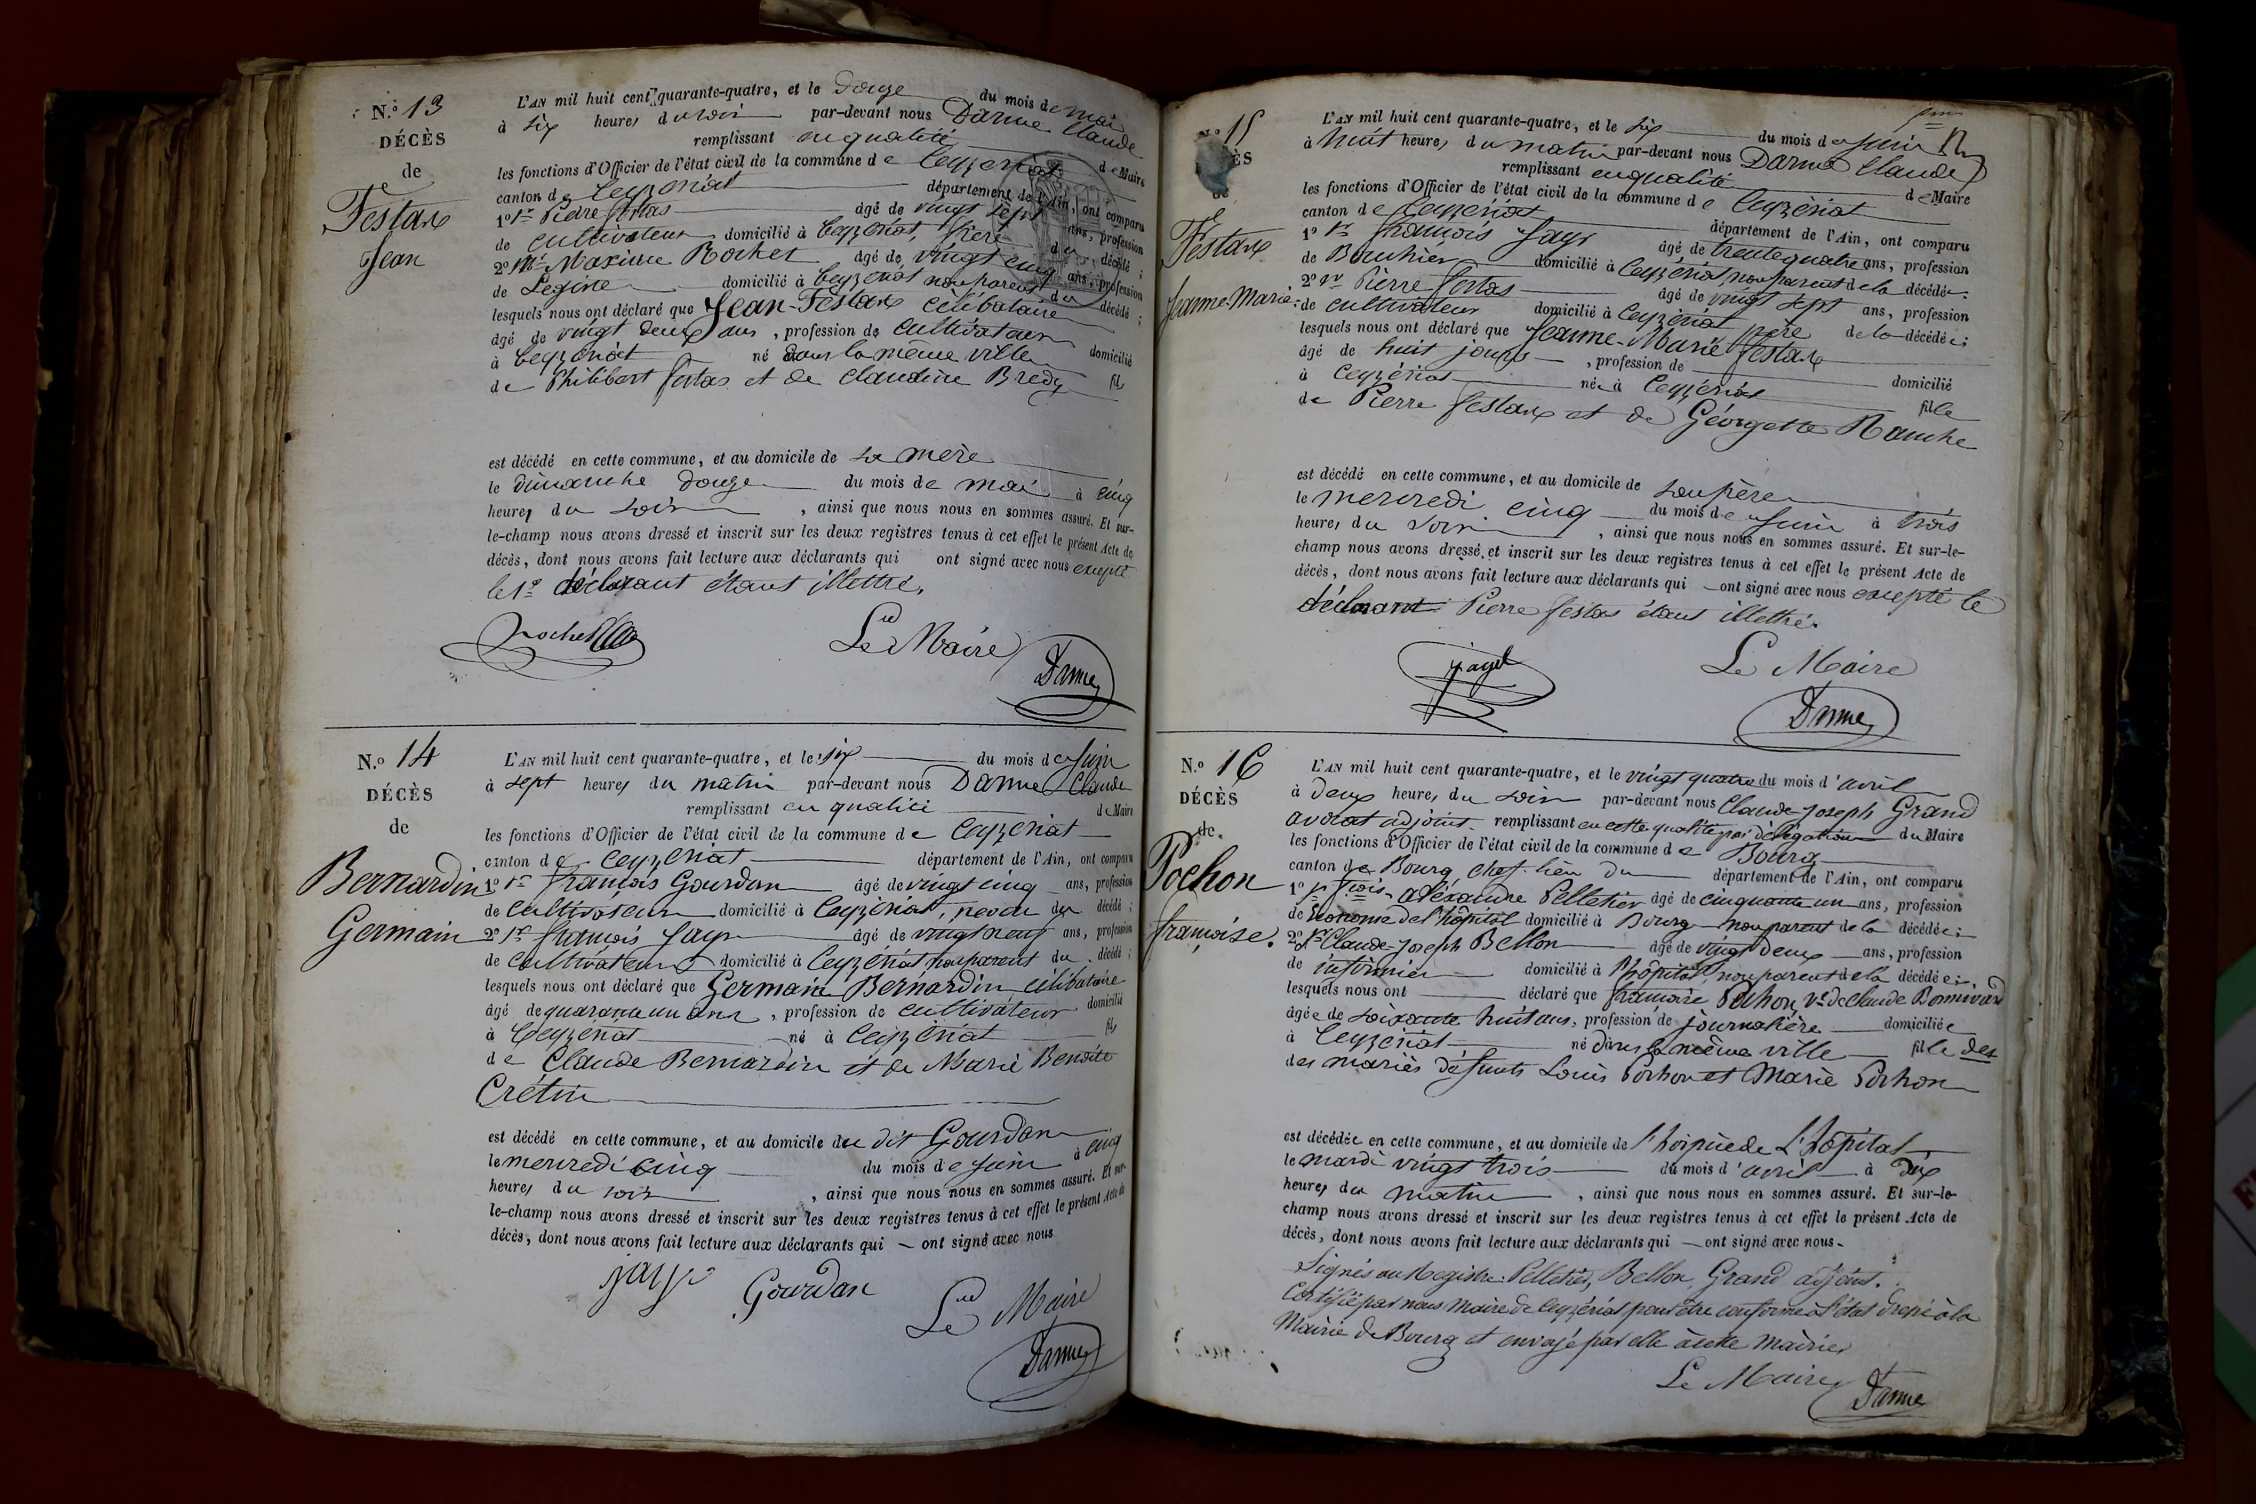 N.º 13
DÉCÈS
de
Festas
Jean
L'AN mil huit cent quarante-quatre, et le Douze du mois de mai
à six heures du soir par-devant nous Darme Claude
remplissant en qualité de Maire
les fonctions d'Officier de l'état civil de la commune de Ceyzériat
canton de Ceyzériat département de l'Ain, ont comparu
1º Sr Pierre festas âgé de vingt sept ans, profession
de cultivateur domicilié à Ceyzériat, frère du décédé ;
2º Mr Maxime Rochet âgé de vingt cinq ans, profession
de domicilié à Ceyzériat non parent du décédé ;
lesquels nous ont déclaré que Jean Festas célibataire
âgé de vingt deux ans, profession de cultivateur
à Ceyzériat né dans la même ville domicilié
de Philibert festas et de Claudine Bredy fils
est décédé en cette commune, et au domicile de sa mère
le dimanche douze du mois de mai à cinq
heures du soir, ainsi que nous nous en sommes assuré. Et sur-
le-champ nous avons dressé et inscrit sur les deux registres tenus à cet effet le présent Acte de
décès, dont nous avons fait lecture aux déclarants qui ont signé avec nous excepté
le 1er déclarant étant illettré.
Rochet
Le Maire
Darme
N.º 14
DÉCÈS
de
Bernardin
Germain
L'AN mil huit cent quarante-quatre, et le six du mois de Juin
à sept heures du matin par-devant nous Darme Claude
remplissant en qualité de Maire
les fonctions d'Officier de l'état civil de la commune de Ceyzériat
canton de Ceyzériat département de l'Ain, ont comparu
1º Sr François Gourdan âgé de vingt cinq ans, profession
de cultivateur domicilié à Ceyzériat, neveu du décédé ;
2º Sr françois Jayr âgé de vingt neuf ans, profession
de cultivateur domicilié à Ceyzériat non parent du décédé ;
lesquels nous ont déclaré que Germain Bernardin célibataire
âgé de quarante un ans, profession de cultivateur domicilié
à Ceyzériat né à Ceyzériat fils
de Claude Bernardin et de Marie Benoite
Crétin
est décédé en cette commune, et au domicile du dit Gourdan
le mercredi cinq du mois de Juin à cinq
heures du soir, ainsi que nous nous en sommes assuré. Et sur-
le-champ nous avons dressé et inscrit sur les deux registres tenus à cet effet le présent Acte de
décès, dont nous avons fait lecture aux déclarants qui ont signé avec nous
Jayr Gourdan
Le Maire
Darme
N.º 15
DÉCÈS
de
Festas
Jeanne Marie
L'AN mil huit cent quarante-quatre, et le six du mois de Juin
à huit heures du matin par-devant nous Darme Claude
remplissant en qualité de Maire
les fonctions d'Officier de l'état civil de la commune de Ceyzériat
canton de Ceyzériat département de l'Ain, ont comparu
1º Sr françois Jayr âgé de trente quatre ans, profession
de Bouchier domicilié à Ceyzériat, non parent de la décédée.
2º Sr Pierre festas âgé de vingt sept ans, profession
de cultivateur domicilié à Ceyzériat père de la décédée ;
lesquels nous ont déclaré que Jeanne-Marie festas
âgé de huit jours, profession de domicilié
à Ceyzériat née à Ceyzériat fille
de Pierre festas et de Géorgette
est décédé en cette commune, et au domicile de son père
le mercredi cinq du mois de Juin à trois
heures du soir, ainsi que nous nous en sommes assuré. Et sur-le-
champ nous avons dressé et inscrit sur les deux registres tenus à cet effet le présent Acte de
décès, dont nous avons fait lecture aux déclarants qui ont signé avec nous excepté le
déclarant Pierre festas étant illettré.
Le Maire
Darme
N.º 16
DÉCÈS
de
Pochon
françoise.
L'AN mil huit cent quarante-quatre, et le vingt quatre du mois d'avril
à deux heures du soir par-devant nous Claude Joseph Grand
avocat adjoint remplissant en cette qualité par délégation du Maire
les fonctions d'Officier de l'état civil de la commune de Bourg
canton de Bourg, chef-lieu du département de l'Ain, ont comparu
1º Sr fçois Aléxandre Pelletier âgé de cinquante un ans, profession
de Econome de l'hôpital domicilié à Bourg non parent de la décédée ;
2º Sr Claude-Joseph Bellon âgé de vingt deux ans, profession
de infirmier domicilié à l'hôpital, non parent de la décédée ;
lesquels nous ont déclaré que françoise Pochon, Ve de Claude Bonnivard
âgée de soixante huit ans, profession de journalière domiciliée
à Ceyzériat né dans la même ville fille des
des mariés défunts Louis Pochon et Marie Pochon
est décédée en cette commune, et au domicile de l'hospice de L'hôpital
le mardi vingt trois du mois d'avril à dix
heures du matin, ainsi que nous nous en sommes assuré. Et sur-le-
champ nous avons dressé et inscrit sur les deux registres tenus à cet effet le présent Acte de
décès, dont nous avons fait lecture aux déclarants qui ont signé avec nous.
Signés au Registre: Pelletier, Bellon, Grand adjoint.
Certifié par nous Maire de Ceyzériat pour être conforme à l'état déposé à la
Mairie de Bourg et envoyé par elle à cette mairie
Le Maire
Darme